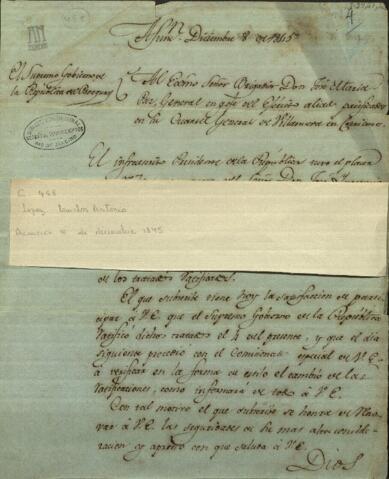 Asun.n Diciembre 8 de 1845
4
El Supremo Gobierno de
la Republica del Paraguay
Al Exmo Señor Brigadier Don José Maria
Paz, General en gefe del Ejército aliado pacificador
en su Cuartel General de Villanueva en Corrientes
El infrascrito Presidente de la Republica tuvo el placer
C 468
Lopez Carlos Antonio
Asunción 8 de diciembre 1845
de los tratados
El que subscribe tiene hoy la satisfaccion de parti-
cipar á V.E. que el Supremo Gobierno de la Republica
ratificó dichos tratados el 4 del presente, y que el dia
siguiente procedió con el Comisionado especial de V.E.
á verificar en la forma de estilo el cambio de las
ratificaciones, como informará de todo á V.E.
Con tal motivo el que subscribe se honra de
á V.E. las seguridades de su mas alta conside-
racion y aprecio con que saluda á V.E.
Dios